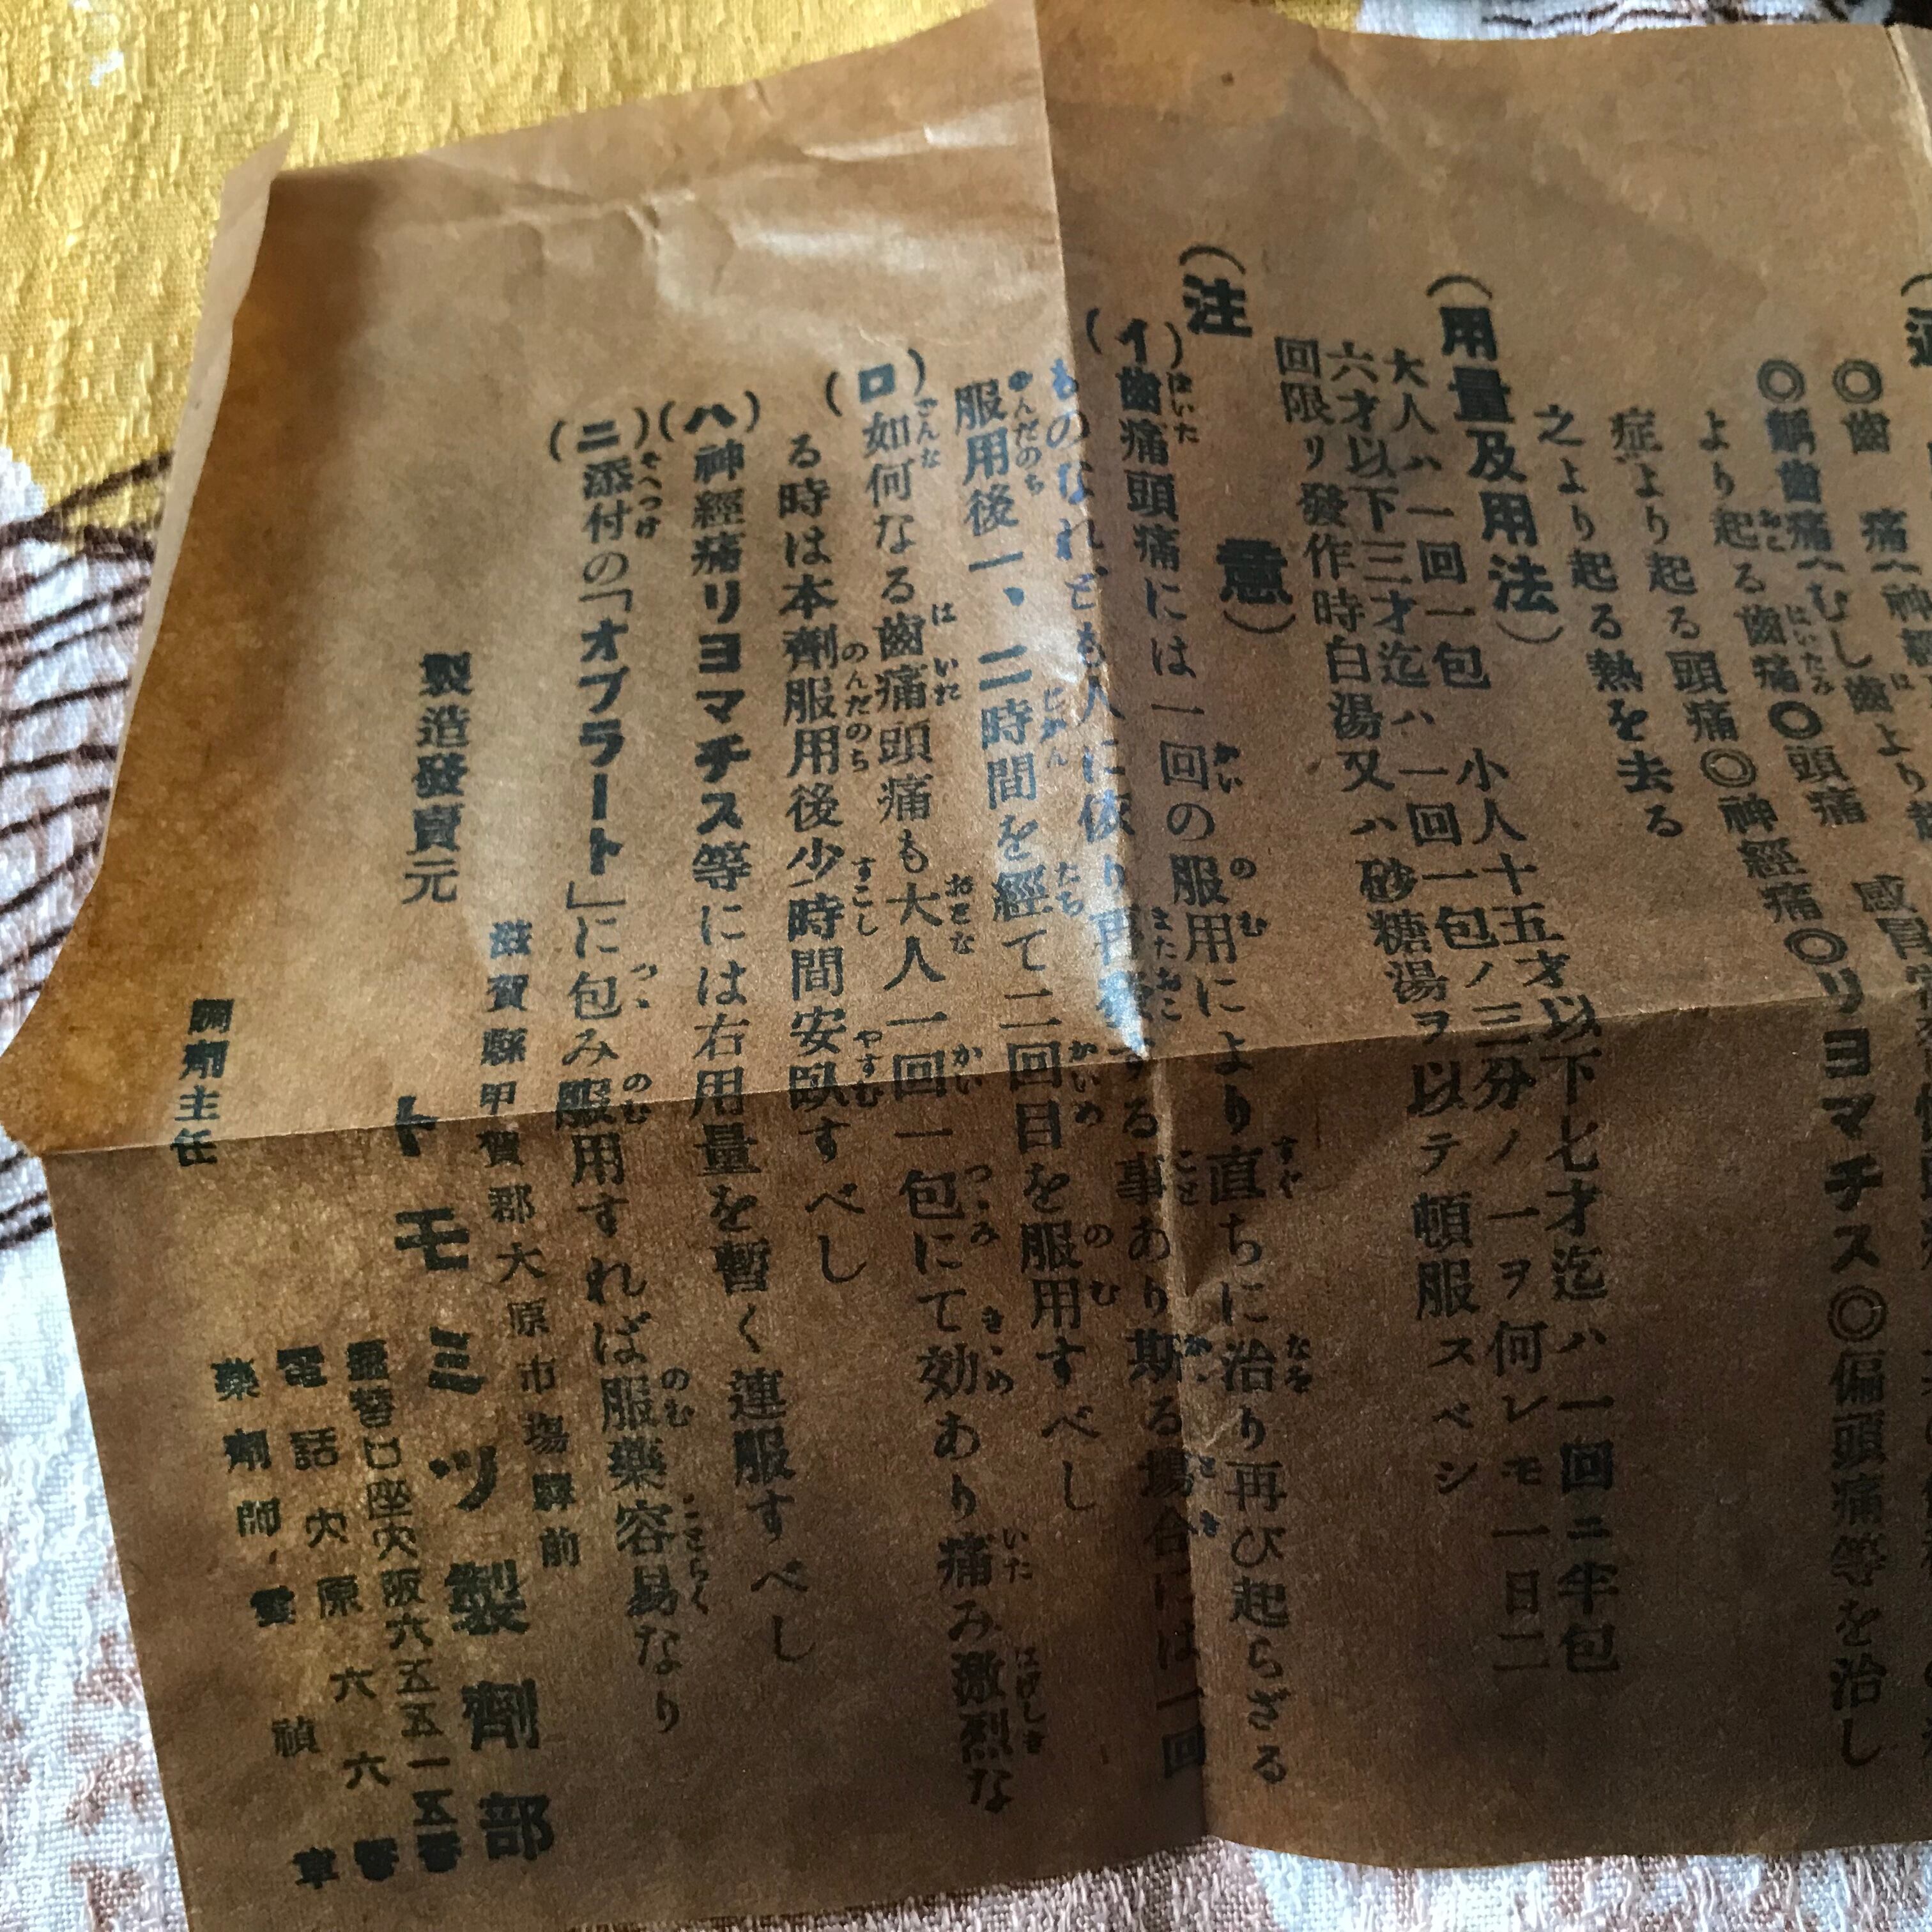 ◎齒 痛(神經
より起る齒痛◎頭痛 感冒
◎齲齒痛(むし齒より
症より起る頭痛◎神經痛◎リヨマチス◎偏頭痛等を治し
之より起る熱を去る
(用量及用法)
大人ハ一回一包 小人十五才以下七才迄ハ一回ニ半包
六才以下三才迄ハ一回一包ノ三分ノ一ヲ何レモ一日二
回限リ發作時白湯又ハ砂糖湯ヲ以テ頓服スベシ
(注意)
(イ)齒痛頭痛には一回の服用により直ちに治り再び起らざる
ものなれども人に依り再發する事あり期る場合には一回
服用後一、二時間を經て二回目を服用すべし
(ロ)如何なる齒痛頭痛も大人一回一包にて効あり痛み激烈な
る時は本劑服用後少時間安臥すべし
(ハ)神經痛リヨマチス等には右用量を暫く連服すべし
(ニ)添付の「オブラート」に包み服用すれば服藥容易なり
滋賀縣甲賀郡大原市塲驛前
製造發賣元 トモミツ製劑部
振替口座大阪六五五一五番
電話大原六六番
調劑主任 藥劑師 禎章